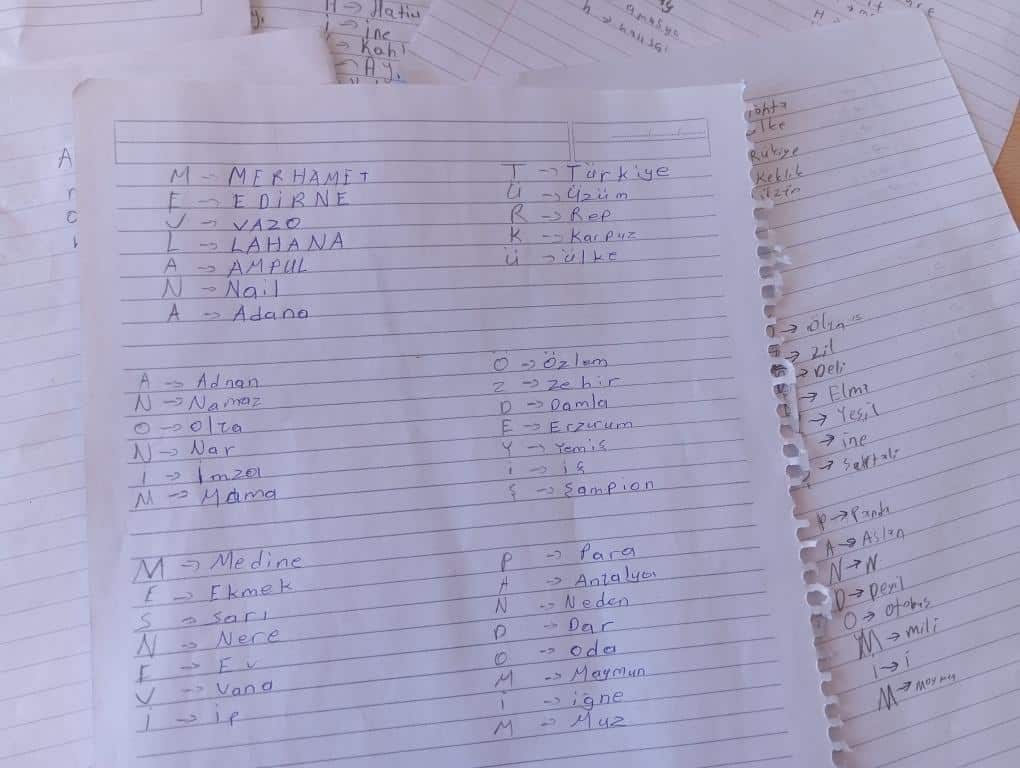 H → Hatıı
İ → ine
→ Kahı
→ Ay,
M → MERHAMET
E → EDİRNE
V → VAZO
L → LAHANA
A → AMPUL
N → Nail
A → Adana
T → Türkiye
Ü → Üzüm
R → Rep
K → Karpuz
Ü → ülke
A → Adnan
N → Namaz
O → Olta
N → Nar
I → Imza
M → Mama
Ö → Özlem
Z → Zehir
D → Damla
E → Erzurum
Y → Yemiş
İ → iş
Ş → Şampion
M → Medine
E → Ekmek
S → Sarı
N → Nere
E → Ev
V → Vana
İ → ip
P → Para
A → Antalya
N → Neden
D → Dar
O → Oda
M → Maymun
İ → iğne
M → Muz
Rukiye
Keklik
→ Zil
→ Deli
→ Elma
→ Yeşil
→ ine
P → Panda
A → Aslan
N → N
D → Devil
O → Otobis
M → mili
I → i
M →